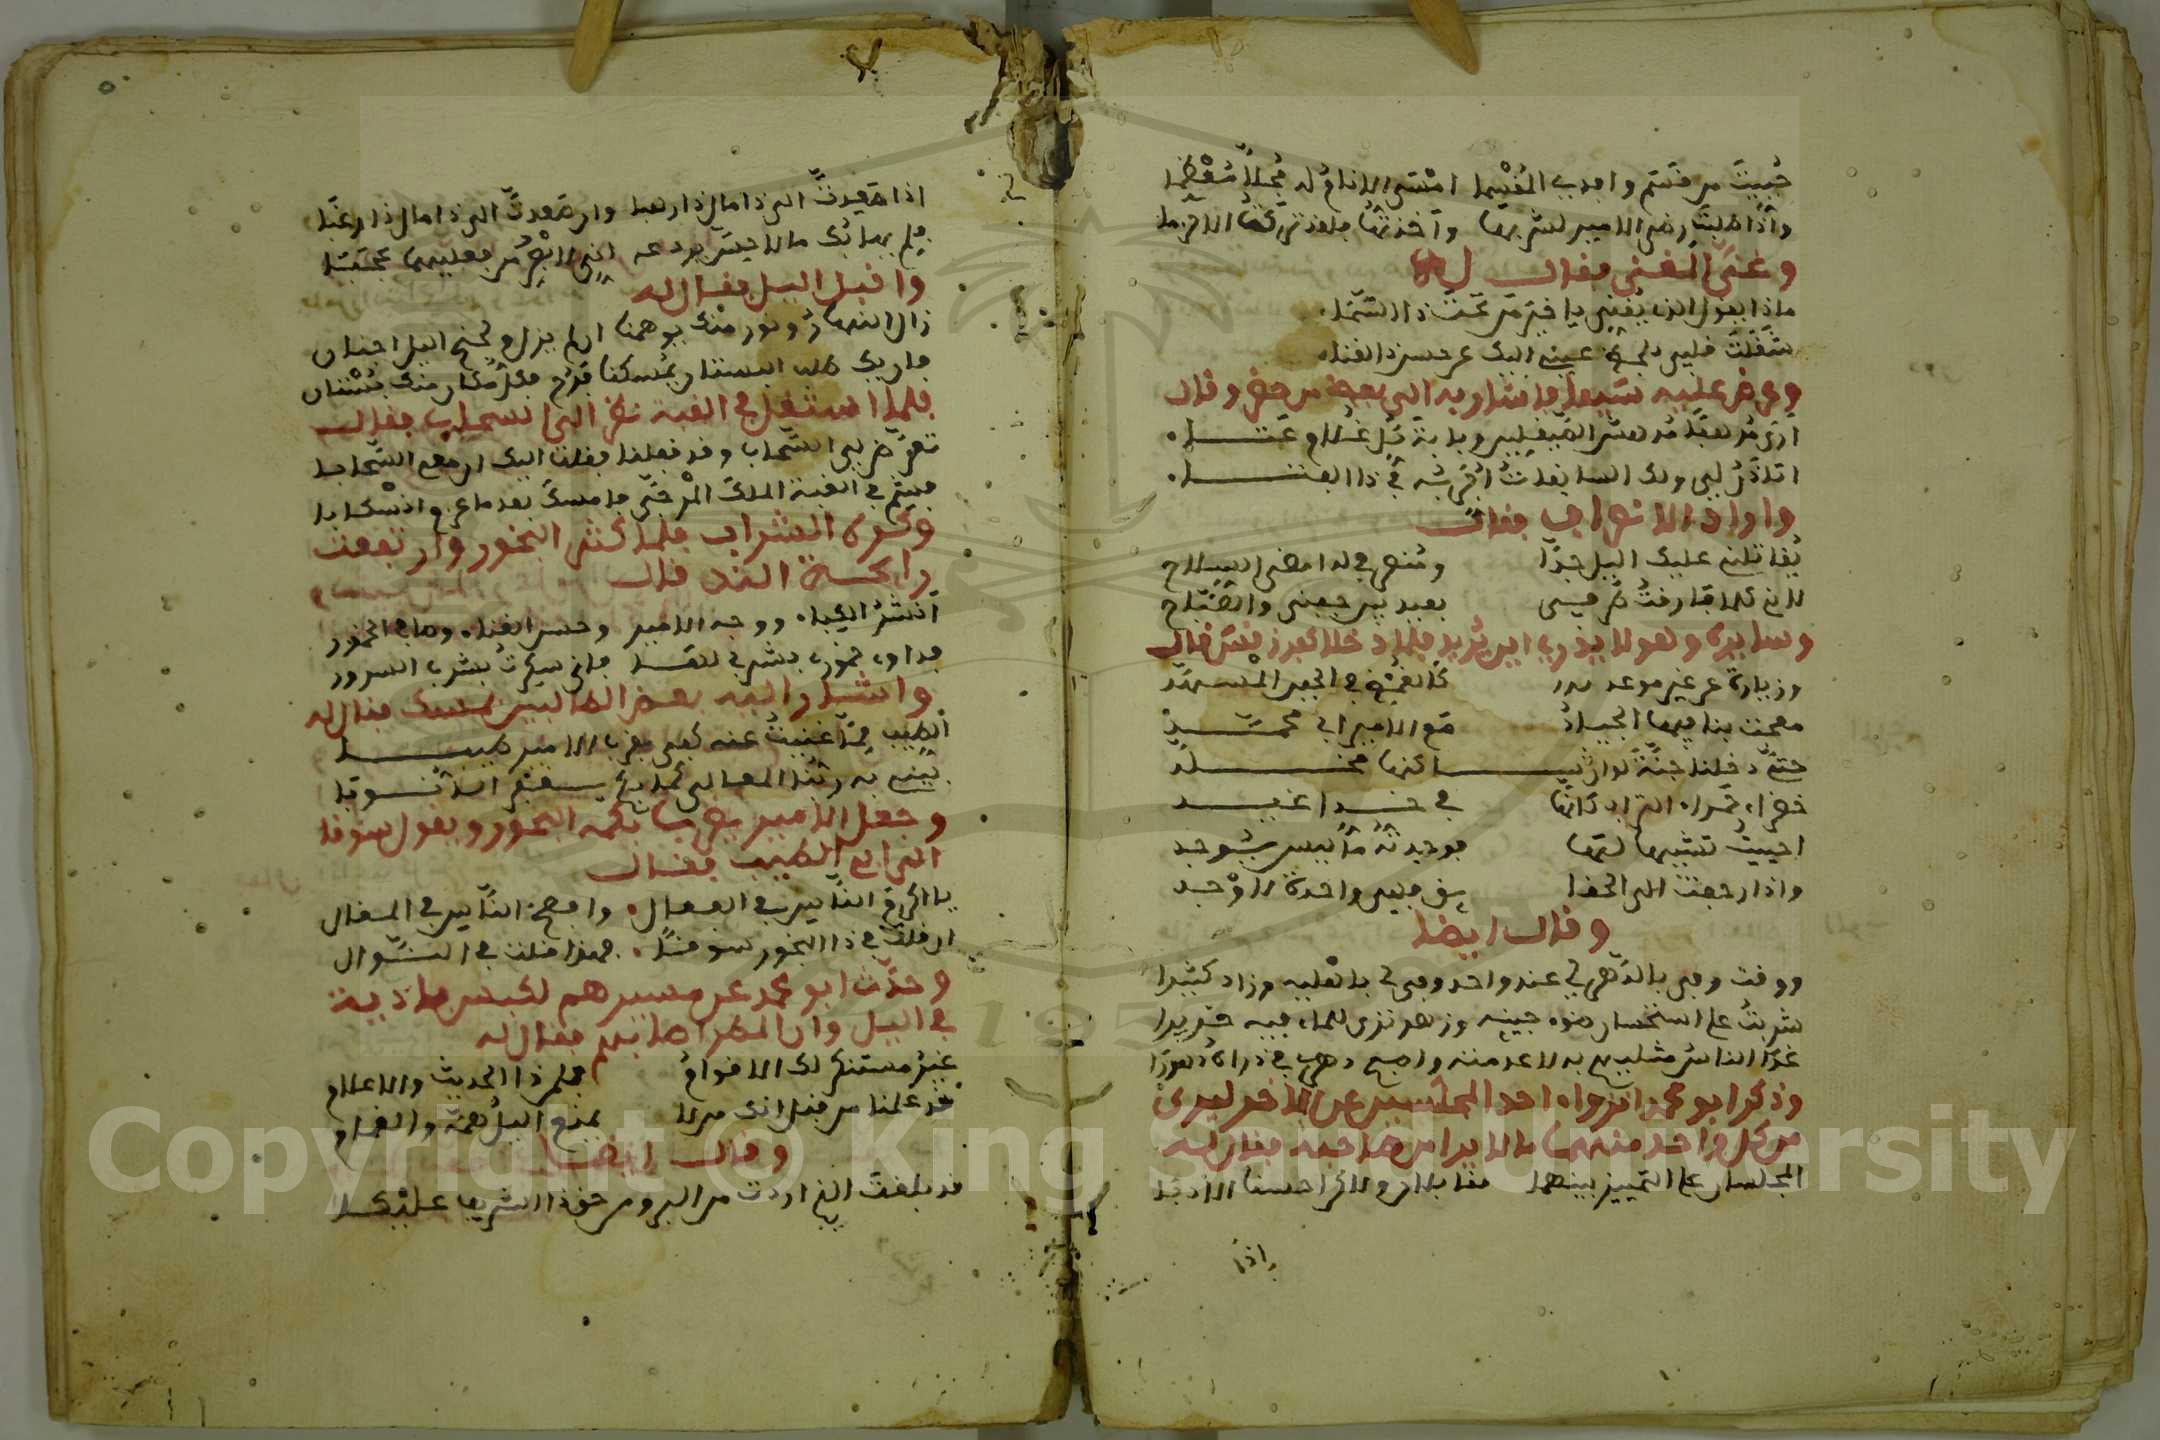 حُيِيتَ من قسم وافدي المقسما امسى الانام له مجلا معظما
واذا طلبت رضى الامير لشربها واخذتها فلقد تركت الاحرما
وغنى المغنى فقال له
ماذا يقول الذي يغني يا خير من تحت ذا السماء
شغلت قلبي بلحظ عيني اليك عن حسن ذا الغناء
وعرض عليه سيفا فاشار به الى بعض من حضر وقال
ارى مرهفا مدهش الصيقلين وبابة كل غلام عتا
اتاذن لي ولك السابقات اجربه في ذا الفتا
واراد الانصراف فقال
يقاتلني عليك اليل جدا ومنصرفي له امضى السلاح
لاني كلما فارقت طرفي بعيد بين جفني والصباح
وسايره وهو لا يدري اين يريد فلما دخلا كفرزنس قال
وزيارة عن غير موعد كالغمض في الجفن المسهد
معجت بنا فيها الجياد مع الامير ابي محمد
حتى دخلنا جنة لو ان ساكنها مخلد
خضراء حمراء التراب كانها في خد اغيد
احببت تشبيها لها فوجدته ما ليس يوجد
واذا رجعت الى الحقا يق فهي واحدة لاوحد
وقال ايضا
ووقت وفى بالدهر لي عند واحد وفى لي باهليه وزاد كثيرا
شربت على استحسان ضوء جبينه وزهر ترى للماء فيه خريرا
غدا الناس مثليهم به لا عدمته واصبح دهري في ذراه دهورا
وذكر ابو محمد انزواء احد المجلسين عن الاخر ليرى
من كل واحد منهما ما لا يرا من صاحبه فقال له
المجلسان على التمييز بينهما مقابلان ولاكن احسنا الادبا
اذا
اذا صعدت الى ذا مال ذا رهبا وان صعدت الى ذا مال ذا رهبا
فلم يهابك ما لا حس يردعه اني لابصر من فعليهما عجبا
واقبل اليل فقال له
زال النهار ونور منك يوهمنا ان لم يزل ولجنح اليل اجنان
فان يكن طلب البستان يمسكنا فرح فكل مكان منك بستان
فلما استقل في القبة نظر الى السحاب فقال
تعرض لي السحاب وقد قفلنا فقلت اليك ان معي السحابا
فشم في القبة الملك المرجى فامسك بعد ما عزم انسكابا
وكره الشراب فلما كثر البخور وارتفعت
رايحة الند قال
انشر الكباء ووجه الامير وحسن الغناء وصافي الخمور
فداو خماري بشربي لها فاني سكرت بشرب السرور
واشار اليه بعض الطالبيين بمسك فقال له
الطيب مما غنيت عنه كفى بقرب الامير طيبا
يبني به ربنا المعالي كما بكم يغفر الذنوبا
وجعل الامير يضرب بكمه البخور ويقول سوقا
الى ابي الطيب فقال
يا اكرم الناس في الفعال وافصح الناس في المقال
ان قلت في ذا البخور سوقا فهكذا قلت في النوال
وحدث ابو محمد عن مسيرهم لكبس بادية
في اليل وان المطر اصابهم فقال له
غير مستنكر لك الاقدام فلمن ذا الحديث والاعلام
قد علمنا من قبل انك من لا يمنع اليل همه والغمام
وقال ايضا
قد بلغت الذي اردت من البر ومن حق ذا الشريف عليكا